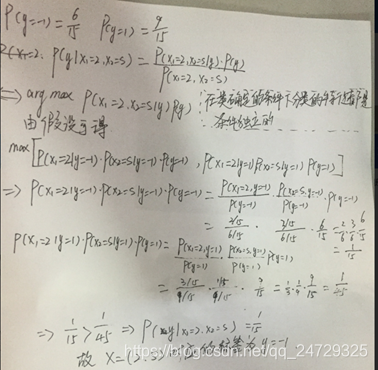 P(y=-1)=6/15 P(y=1)=9/15
P(y|x1=2, x2=s) = P(x1=2, x2=s|y)·P(y) / P(x1=2, x2=s)
⇔ arg max P(x1=2, x2=s|y) P(y)
由假设可得 条件独立的
max[P(x1=2|y=-1)·P(x2=s|y=-1)P(y=-1), P(x1=2|y=1)P(x2=s|y=1)P(y=1)]
⇒ P(x1=2|y=-1)·P(x2=s|y=-1)·P(y=-1) = P(x1=2,y=-1)/P(y=-1) · P(x2=s,y=-1)/P(y=-1) · P(y=-1)
= 2/15 / 6/15 · 3/15 / 6/15 · 6/15 = 2/6·3/6·6/15
= 1/15
P(x1=2|y=1)·P(x2=s|y=1)P(y=1) = P(x1=2,y=1)/P(y=1) · P(x2=s,y=1)/P(y=1) P(y=1)
= 3/15 / 9/15 · 1/15 / 9/15 · 9/15 = 1/3·1/9·9/15 = 1/45
⇒ 1/15 > 1/45 ⇒ P(x1=2, x2=s) = 1/15
故 x=(2,s) y=-1
https://blog.csdn.net/qq_24729325